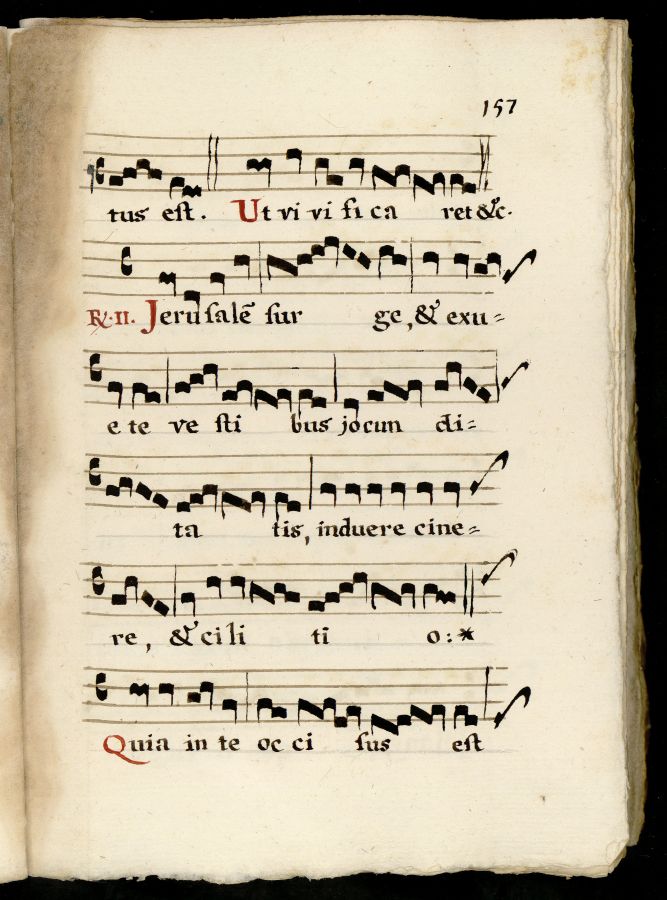 157
tus est. Ut vi vi fi ca ret &c.
R. II. Jerusalē sur ge, & exu=
e te ve sti bus jocun di=
ta tis, induere cine=
re, & cili ti o: *
Quia in te oc ci sus est